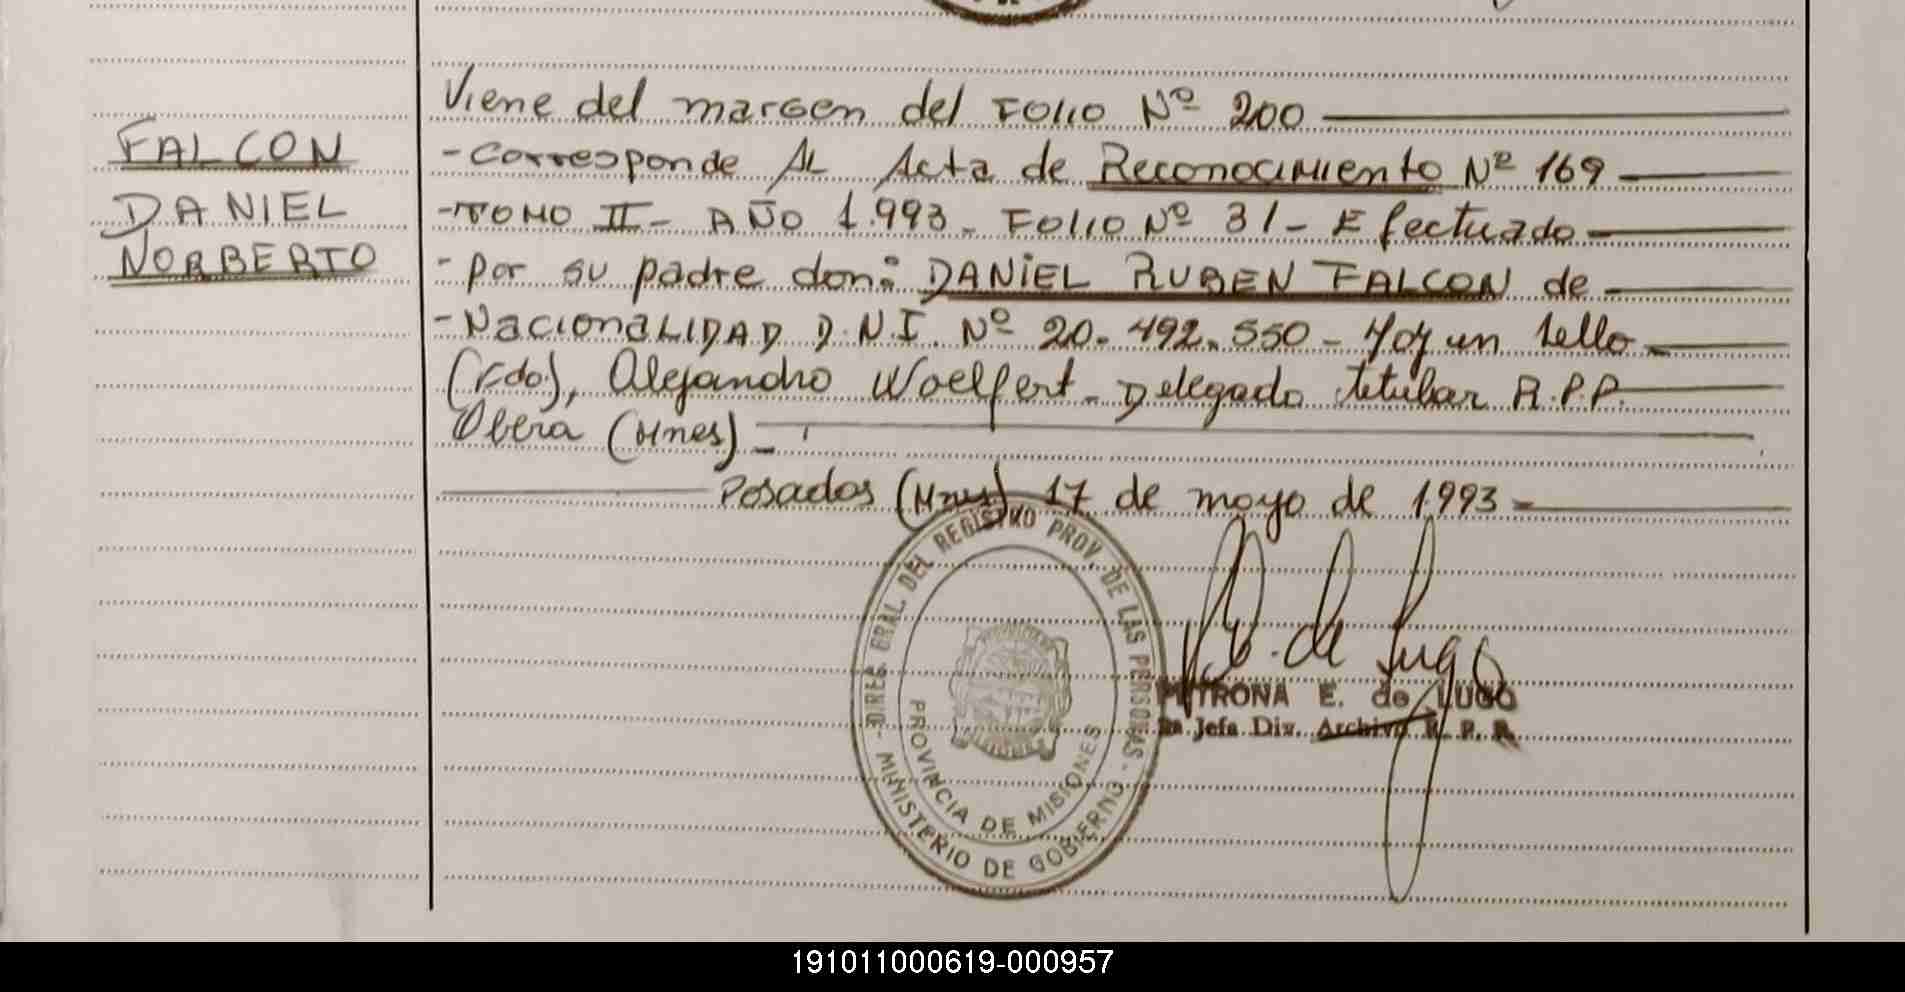 FALCON
DANIEL
NORBERTO
Viene del margen del Folio Nº 200
- Corresponde AL Acta de Reconocimiento Nº 169
- TOMO II - AÑO 1.993 - Folio Nº 31 - Efectuado -
- por su padre don: DANIEL RUBEN FALCON de -
- Nacionalidad D.N.I. Nº 20.492.550 - Hay un sello -
(Fdo), Alejandro Woelfert - Delegado titular R.P.P.
Obera (Mnes) -
Posadas (Mnes) 17 de mayo de 1993 -
DIREC GRAL. DEL REGISTRO PROV. DE LAS PERSONAS.
MINISTERIO DE GOBIERNO
PROVINCIA DE MISIONES
P. E. de Lugo
PETRONA E. de LUGO
Jefa Div. Archivo R. P. P.
191011000619-000957